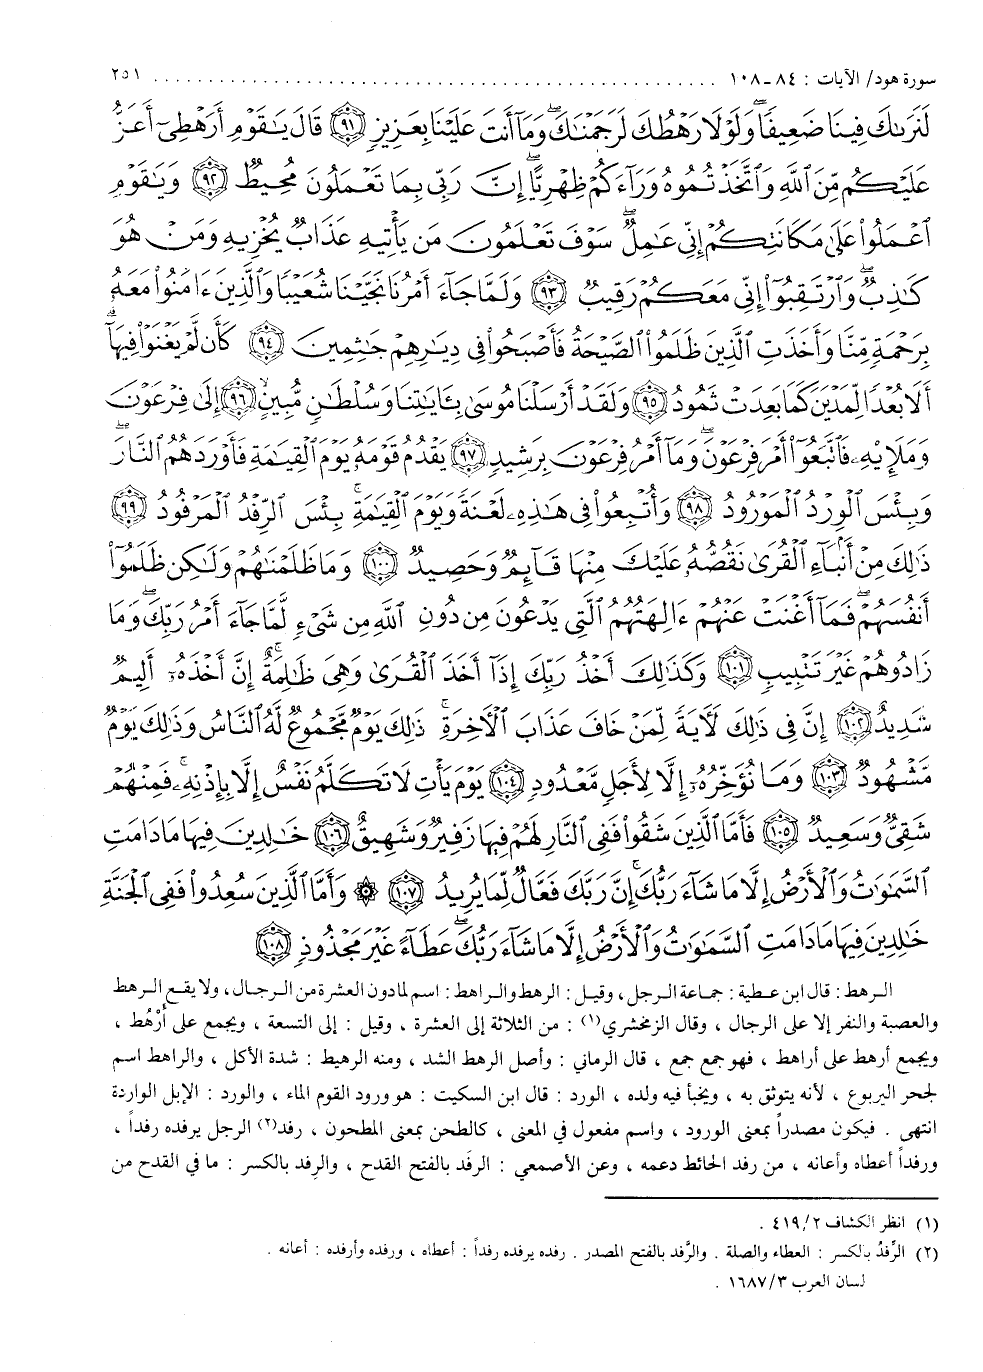 سورة هود/ الآيات : ٨٤-١٠٨ ........................................................ ٢٥١
لَنَرَىٰكَ فِينَا ضَعِيفًا ۖ وَلَوْلَا رَهْطُكَ لَرَجَمْنَٰكَ ۖ وَمَآ أَنتَ عَلَيْنَا بِعَزِيزٍ ﴿٩١﴾ قَالَ يَٰقَوْمِ أَرَهْطِىٓ أَعَزُّ
عَلَيْكُم مِّنَ ٱللَّهِ وَٱتَّخَذْتُمُوهُ وَرَآءَكُمْ ظِهْرِيًّا ۖ إِنَّ رَبِّى بِمَا تَعْمَلُونَ مُحِيطٌ ﴿٩٢﴾ وَيَٰقَوْمِ
ٱعْمَلُوا۟ عَلَىٰ مَكَانَتِكُمْ إِنِّى عَٰمِلٌ ۖ سَوْفَ تَعْلَمُونَ مَن يَأْتِيهِ عَذَابٌ يُخْزِيهِ وَمَنْ هُوَ
كَٰذِبٌ ۖ وَٱرْتَقِبُوٓا۟ إِنِّى مَعَكُمْ رَقِيبٌ ﴿٩٣﴾ وَلَمَّا جَآءَ أَمْرُنَا نَجَّيْنَا شُعَيْبًا وَٱلَّذِينَ ءَامَنُوا۟ مَعَهُۥ
بِرَحْمَةٍ مِّنَّا وَأَخَذَتِ ٱلَّذِينَ ظَلَمُوا۟ ٱلصَّيْحَةُ فَأَصْبَحُوا۟ فِى دِيَٰرِهِمْ جَٰثِمِينَ ﴿٩٤﴾ كَأَن لَّمْ يَغْنَوْا۟ فِيهَآ ۗ
أَلَا بُعْدًا لِّمَدْيَنَ كَمَا بَعِدَتْ ثَمُودُ ﴿٩٥﴾ وَلَقَدْ أَرْسَلْنَا مُوسَىٰ بِـَٔايَٰتِنَا وَسُلْطَٰنٍ مُّبِينٍ ﴿٩٦﴾ إِلَىٰ فِرْعَوْنَ
وَمَلَإِي۟هِۦ فَٱتَّبَعُوٓا۟ أَمْرَ فِرْعَوْنَ ۖ وَمَآ أَمْرُ فِرْعَوْنَ بِرَشِيدٍ ﴿٩٧﴾ يَقْدُمُ قَوْمَهُۥ يَوْمَ ٱلْقِيَٰمَةِ فَأَوْرَدَهُمُ ٱلنَّارَ ۖ
وَبِئْسَ ٱلْوِرْدُ ٱلْمَوْرُودُ ﴿٩٨﴾ وَأُتْبِعُوا۟ فِى هَٰذِهِۦ لَعْنَةً وَيَوْمَ ٱلْقِيَٰمَةِ ۚ بِئْسَ ٱلرِّفْدُ ٱلْمَرْفُودُ ﴿٩٩﴾
ذَٰلِكَ مِنْ أَنۢبَآءِ ٱلْقُرَىٰ نَقُصُّهُۥ عَلَيْكَ ۖ مِنْهَا قَآئِمٌ وَحَصِيدٌ ﴿١٠٠﴾ وَمَا ظَلَمْنَٰهُمْ وَلَٰكِن ظَلَمُوٓا۟
أَنفُسَهُمْ ۖ فَمَآ أَغْنَتْ عَنْهُمْ ءَالِهَتُهُمُ ٱلَّتِى يَدْعُونَ مِن دُونِ ٱللَّهِ مِن شَىْءٍ لَّمَّا جَآءَ أَمْرُ رَبِّكَ ۖ وَمَا
زَادُوهُمْ غَيْرَ تَتْبِيبٍ ﴿١٠١﴾ وَكَذَٰلِكَ أَخْذُ رَبِّكَ إِذَآ أَخَذَ ٱلْقُرَىٰ وَهِىَ ظَٰلِمَةٌ ۚ إِنَّ أَخْذَهُۥٓ أَلِيمٌ
شَدِيدٌ ﴿١٠٢﴾ إِنَّ فِى ذَٰلِكَ لَـَٔايَةً لِّمَنْ خَافَ عَذَابَ ٱلْـَٔاخِرَةِ ۚ ذَٰلِكَ يَوْمٌ مَّجْمُوعٌ لَّهُ ٱلنَّاسُ وَذَٰلِكَ يَوْمٌ
مَّشْهُودٌ ﴿١٠٣﴾ وَمَا نُؤَخِّرُهُۥٓ إِلَّا لِأَجَلٍ مَّعْدُودٍ ﴿١٠٤﴾ يَوْمَ يَأْتِ لَا تَكَلَّمُ نَفْسٌ إِلَّا بِإِذْنِهِۦ ۚ فَمِنْهُمْ
شَقِىٌّ وَسَعِيدٌ ﴿١٠٥﴾ فَأَمَّا ٱلَّذِينَ شَقُوا۟ فَفِى ٱلنَّارِ لَهُمْ فِيهَا زَفِيرٌ وَشَهِيقٌ ﴿١٠٦﴾ خَٰلِدِينَ فِيهَا مَا دَامَتِ
ٱلسَّمَٰوَٰتُ وَٱلْأَرْضُ إِلَّا مَا شَآءَ رَبُّكَ ۚ إِنَّ رَبَّكَ فَعَّالٌ لِّمَا يُرِيدُ ﴿١٠٧﴾ ۞ وَأَمَّا ٱلَّذِينَ سُعِدُوا۟ فَفِى ٱلْجَنَّةِ
خَٰلِدِينَ فِيهَا مَا دَامَتِ ٱلسَّمَٰوَٰتُ وَٱلْأَرْضُ إِلَّا مَا شَآءَ رَبُّكَ ۖ عَطَآءً غَيْرَ مَجْذُوذٍ ﴿١٠٨﴾
الرهط : قال ابن عطية : جماعة الرجل ، وقيل : الرهط والراهط : اسم لما دون العشرة من الرجال ، ولا يقع الرهط
والعصبة والنفر إلا على الرجال ، وقال الزمخشري(١) : من الثلاثة إلى العشرة ، وقيل : إلى التسعة ، ويجمع على أَرْهُط ،
ويجمع أرهط على أراهط ، فهو جمع جمع ، قال الرماني : وأصل الرهط الشد ، ومنه الرهيط : شدة الأكل ، والراهط اسم
لجحر اليربوع ، لأنه يتوثق به ، ويخبأ فيه ولده ، الورد : قال ابن السكيت : هو ورود القوم الماء ، والورد : الإبل الواردة
انتهى . فيكون مصدراً بمعنى الورود ، واسم مفعول في المعنى ، كالطحن بمعنى المطحون ، رفد(٢) الرجل يرفده رفداً ،
ورفداً أعطاه وأعانه ، من رفد الحائط دعمه ، وعن الأصمعي : الرفَد بالفتح القدح ، والرِفد بالكسر : ما في القدح من
(١) انظر الكشاف ٤١٩/٢ .
(٢) الرِّفدُ بالكسر : العطاء والصلة . والرَّفد بالفتح المصدر . رفده يرفده رفداً : أعطاه ، ورفده وأرفده : أعانه .
لسان العرب ١٦٨٧/٣ .